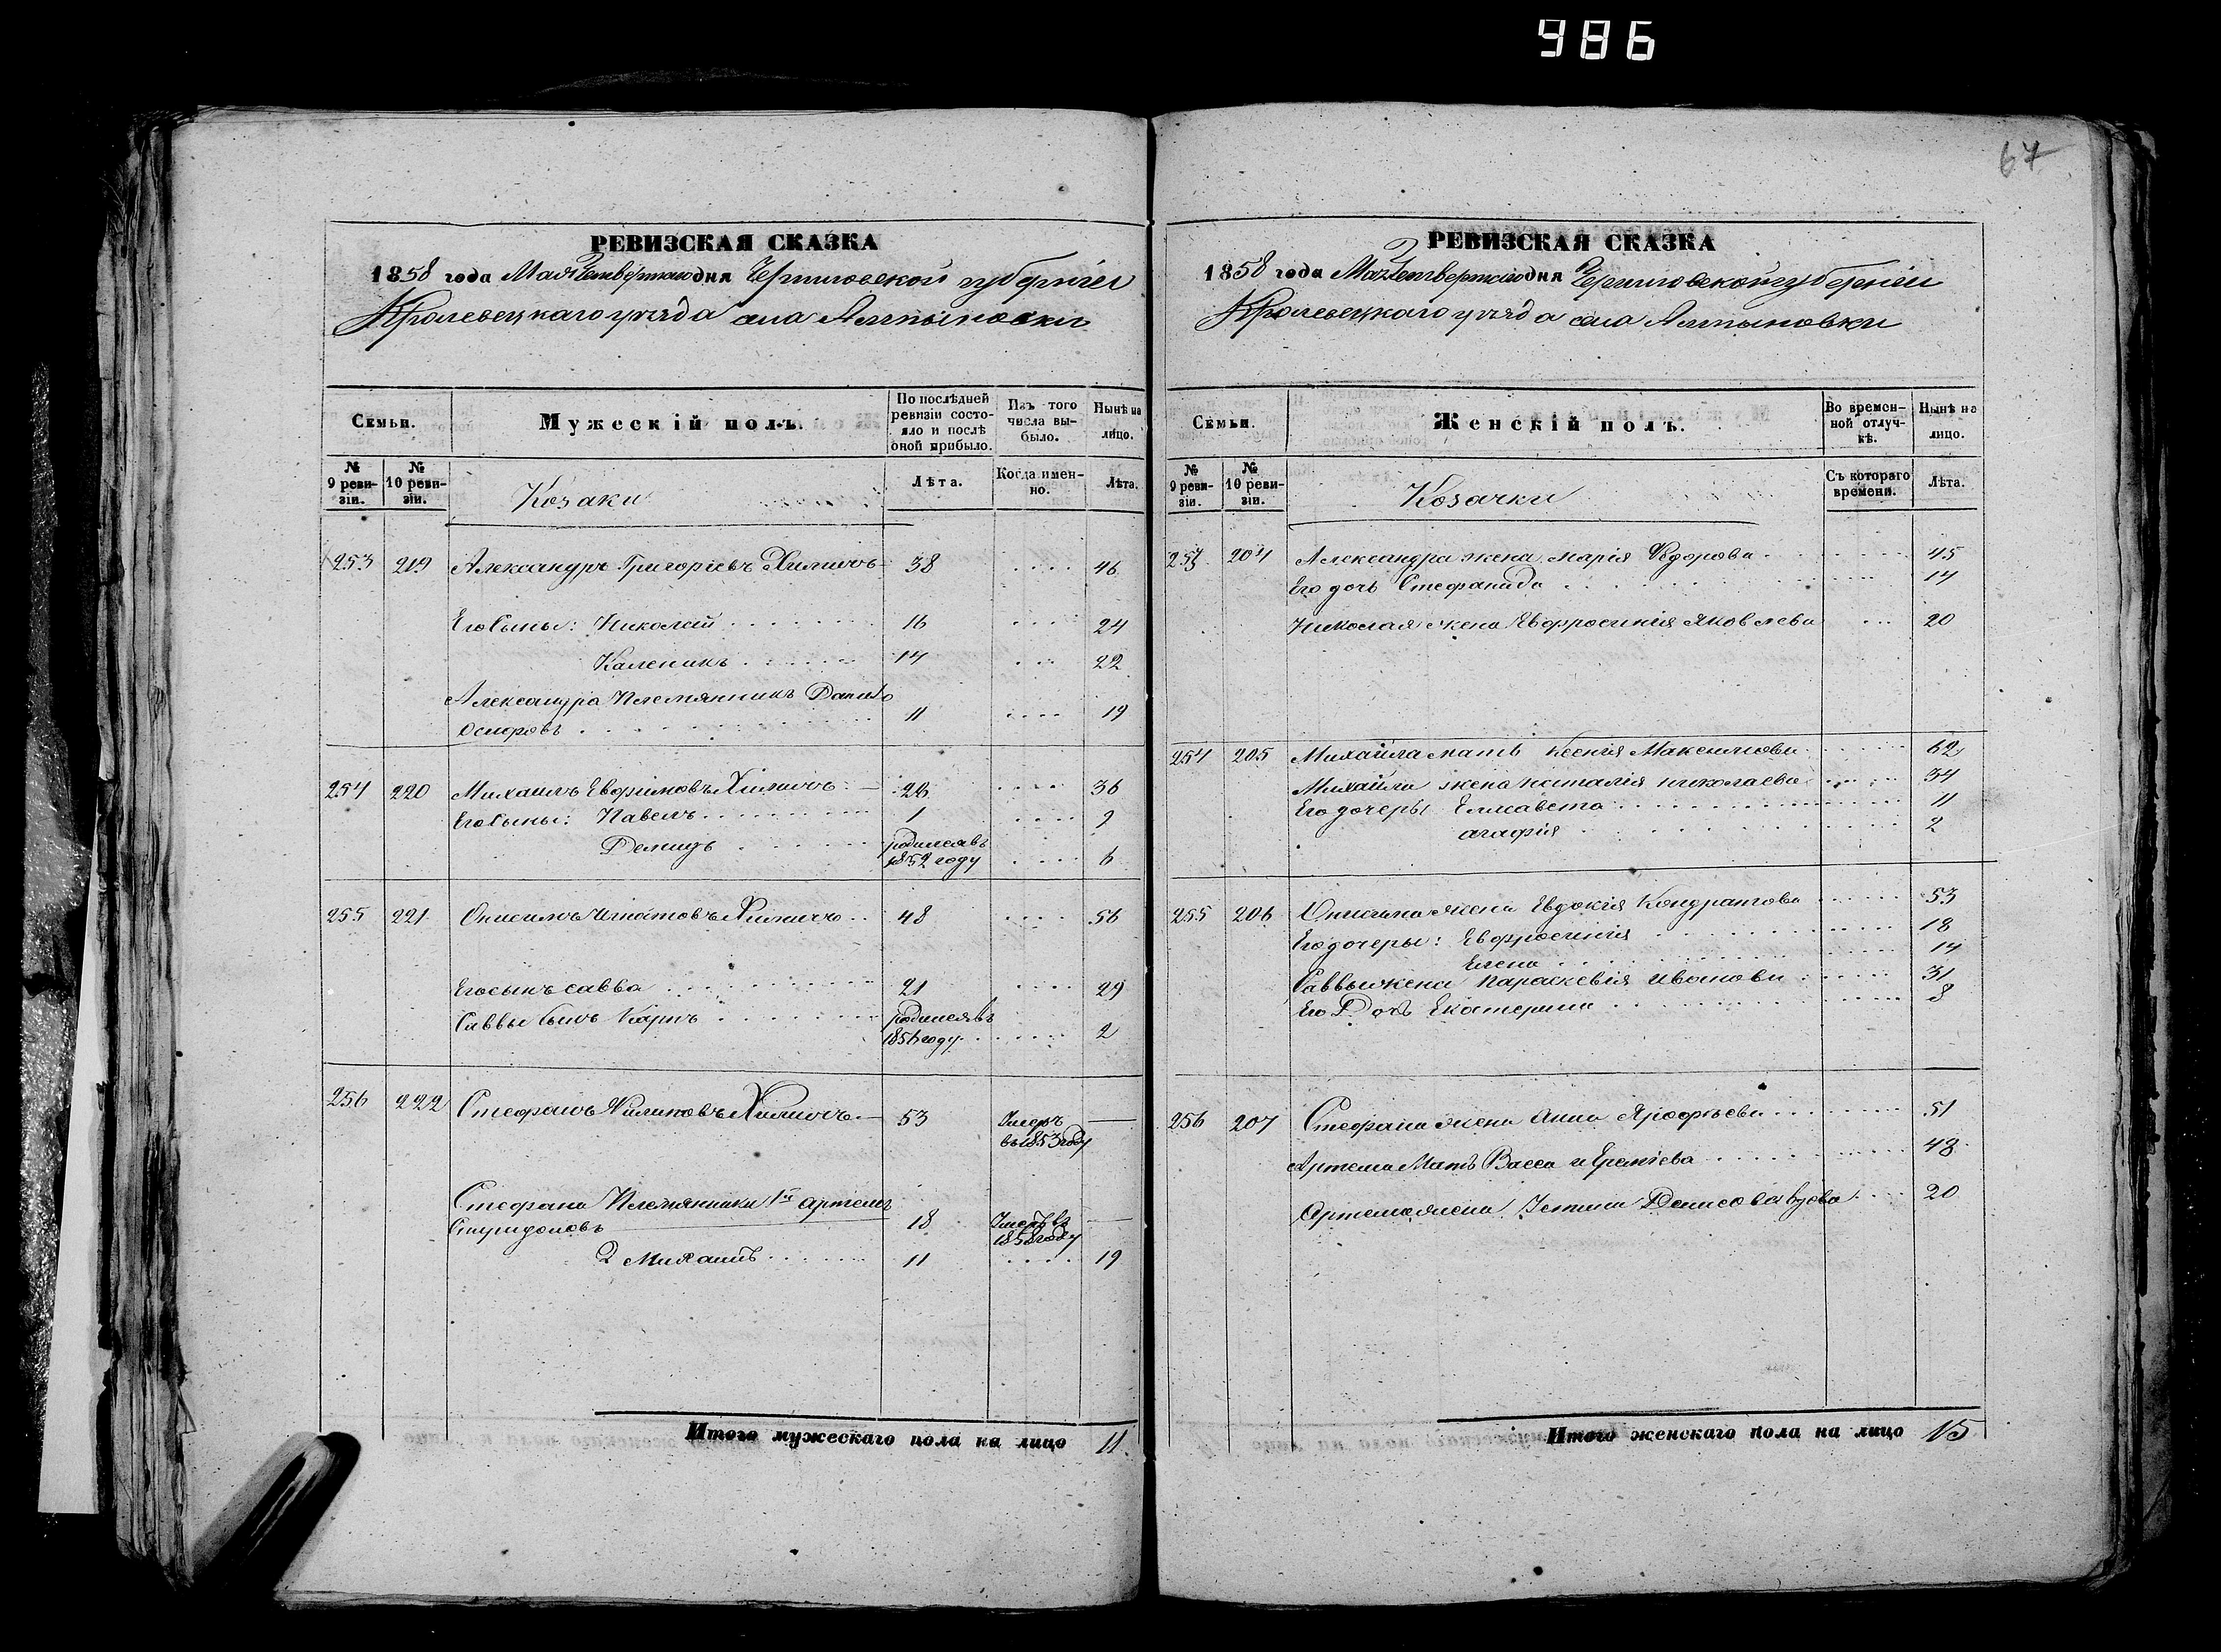 986
67
РЕВИЗСКАЯ СКАЗКА
1858 года Мая Четвертаго дня Черниговской губерніи
Кролевецкаго уѣзда села Алтыновки
Семьи.
Мужескій полъ.
По послѣдней ревизіи состояло и послѣ оной прибыло.
Изъ того числа выбыло.
Нынѣ на лицо.
№ 9 ревизіи.
№ 10 ревизіи.
Козаки
Лѣта.
Когда именно.
Лѣта.
253 219 Александръ Григорьевъ Химичъ 38 .... 46
Его сыны: Николай 16 .... 24
Каленикъ 14 ... 22
Александра Племянникъ Данило
Осиповъ 11 .... 19
254 220 Михаилъ Евфимовъ Химичъ 28 .... 36
Его сыны: Павелъ 1 .... 9
Демидъ родился въ
1852 году .... 6
255 221 Онисимъ Игнатовъ Химичъ 48 .... 56
Его сынъ Савва 21 .... 29
Саввы сынъ Карпъ родился въ
1856 году 2
256 222 Стефанъ Химичъ — 53 Умеръ —
въ 1853 году
Стефана Племянники 1й Артемъ
Спиридоновъ 18 Умеръ въ —
1858 году
2 Михаилъ 11 .... 19
Итого мужескаго пола на лицо 11.
РЕВИЗСКАЯ СКАЗКА
1858 года Мая Четвертаго дня Черниговской губерніи
Кролевецкаго уѣзда села Алтыновки
Семьи.
Женскій полъ.
Во временной отлучкѣ.
Нынѣ на лицо.
№ 9 ревизіи.
№ 10 ревизіи.
Козачки
Съ котораго времени.
Лѣта.
253 204 Александра жена Марія Федорова 45
Его дочь Стефанида 14
Николая жена Евфросинія Яковлева ... 20
254 205 Михайла мать Ксенія Максимова 62
Михайла жена Наталія Николаева 34
Его дочеры Елисавета 11
Агафія 2
255 206 Онисима жена Евдокія Кондратова 53
Его дочеры: Евфросинія 18
Елена 14
Саввы жена Параскевія Иванова 31
Его Дочь Екатерина 8
256 207 Стефана жена Анна Ярофѣева 51
Артема Мать Васса 48
Артема жена Устина Денисова вдова 20
Итого женскаго пола на лицо 15